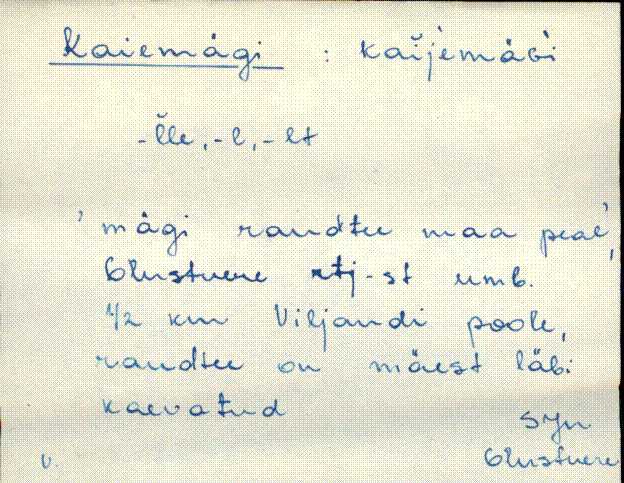 Kaiemägi : kaĭjemäGì
-l̆le, -l, -lt
'mägi raudtee maa peal',
Olustvere rtj-st umb.
1/2 km Viljandi poole,
raudtee on mäest läbi
kaevatud
SJn
Olustvere
v.